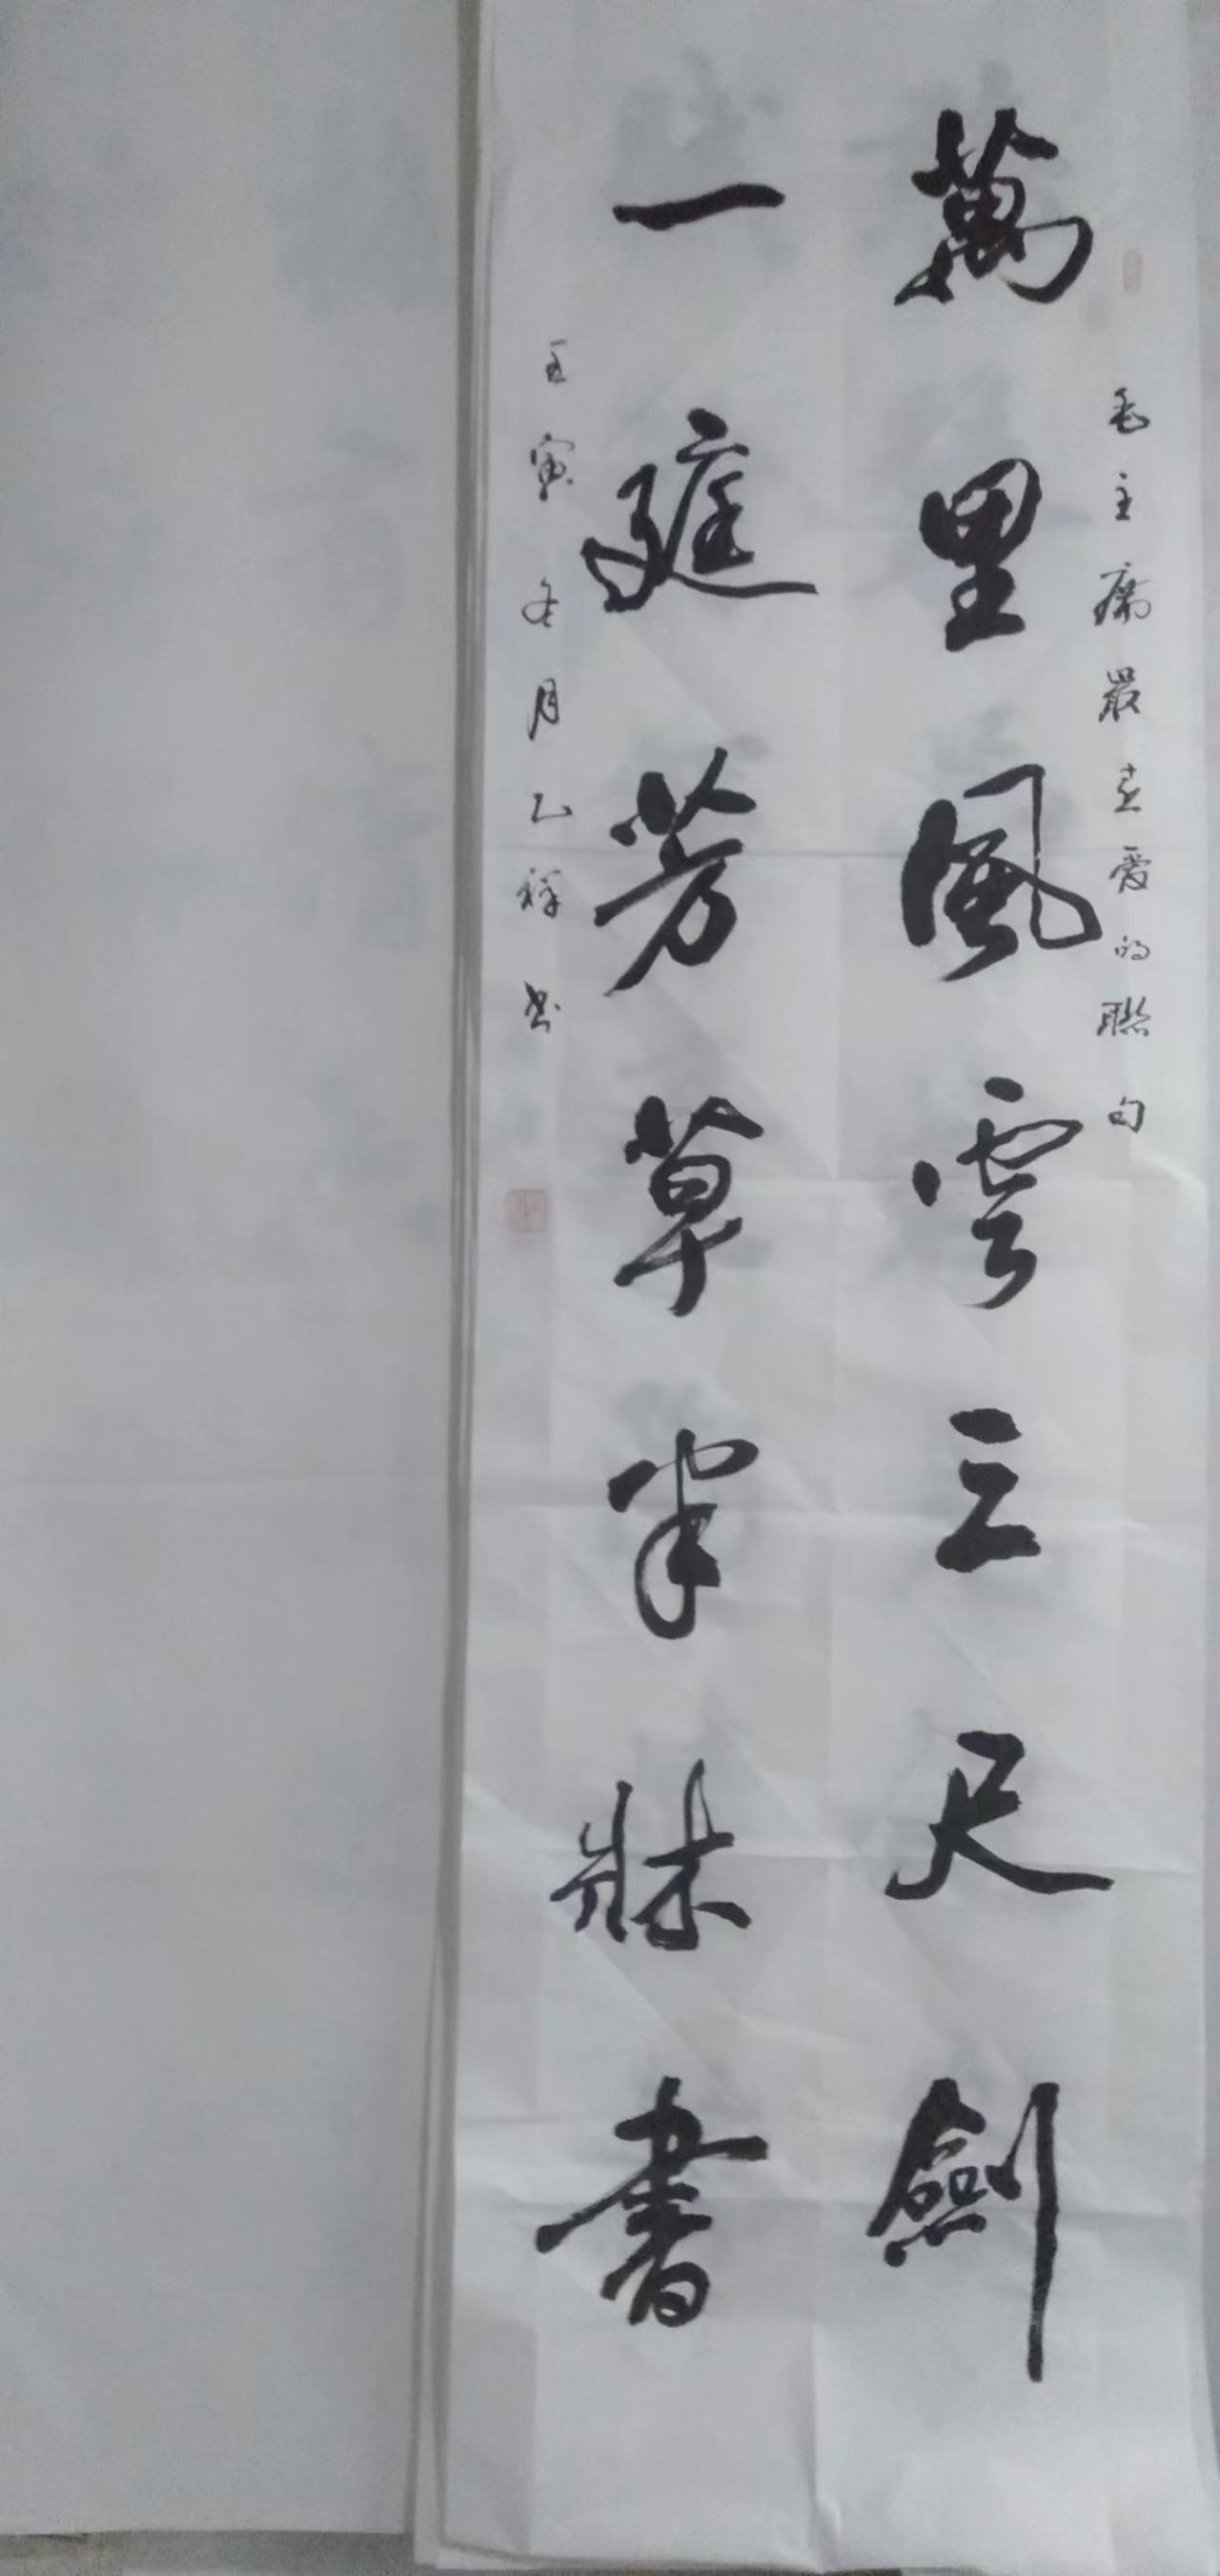 毛主席最喜爱的聯句
萬里風雲三尺劍
一庭芳草半牀書
壬寅冬月乙祥书